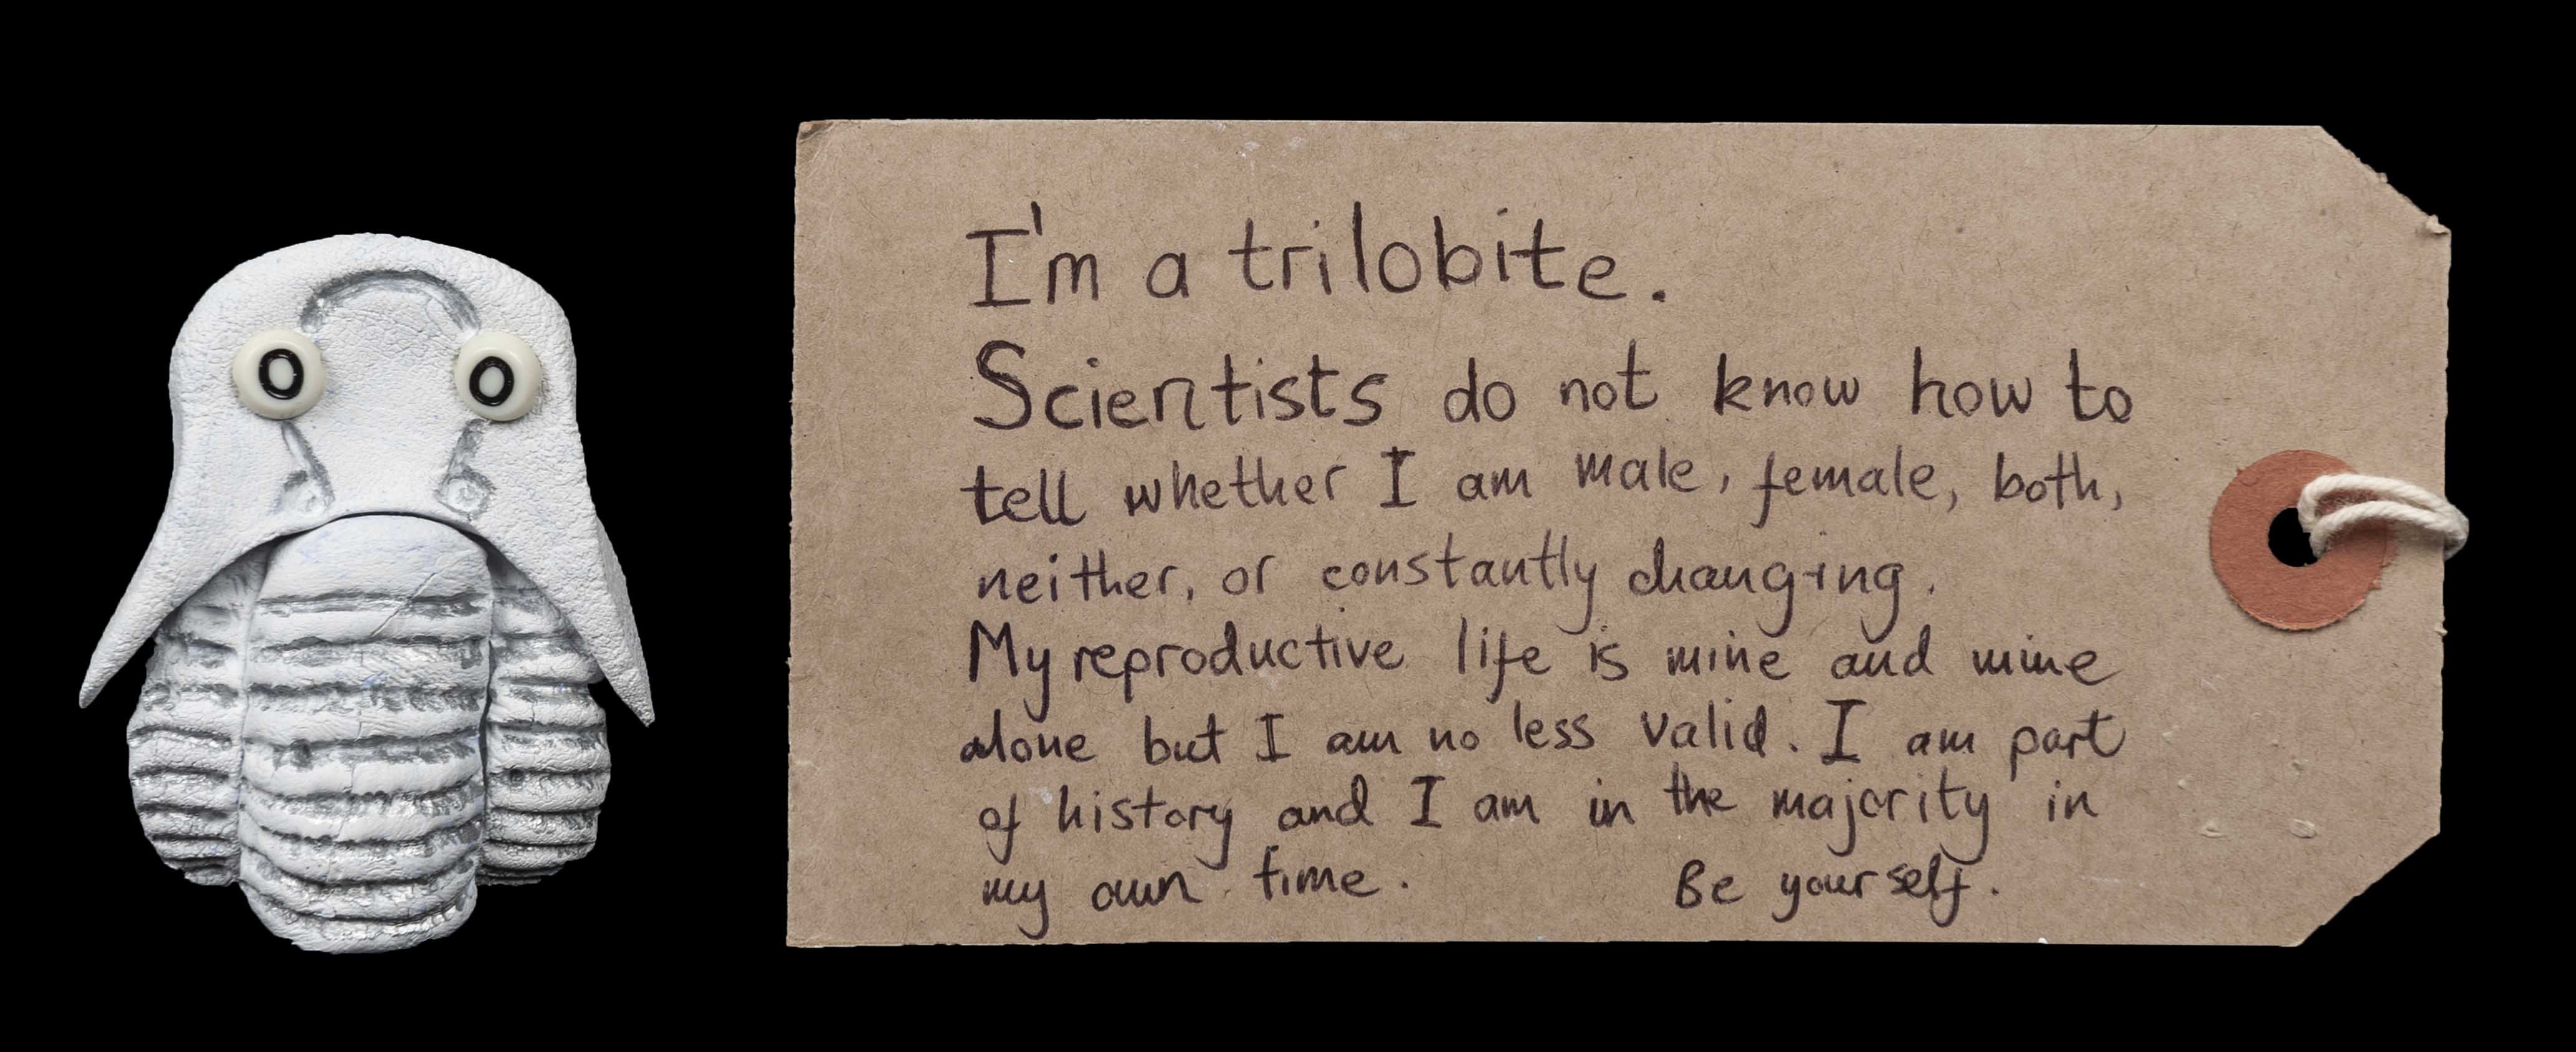 O O
I'm a trilobite.
Scientists do not know how to
tell whether I am male, female, both,
neither, or constantly changing.
My reproductive life is mine and mine
alone but I am no less valid. I am part
of history and I am in the majority in
my own time. Be yourself.